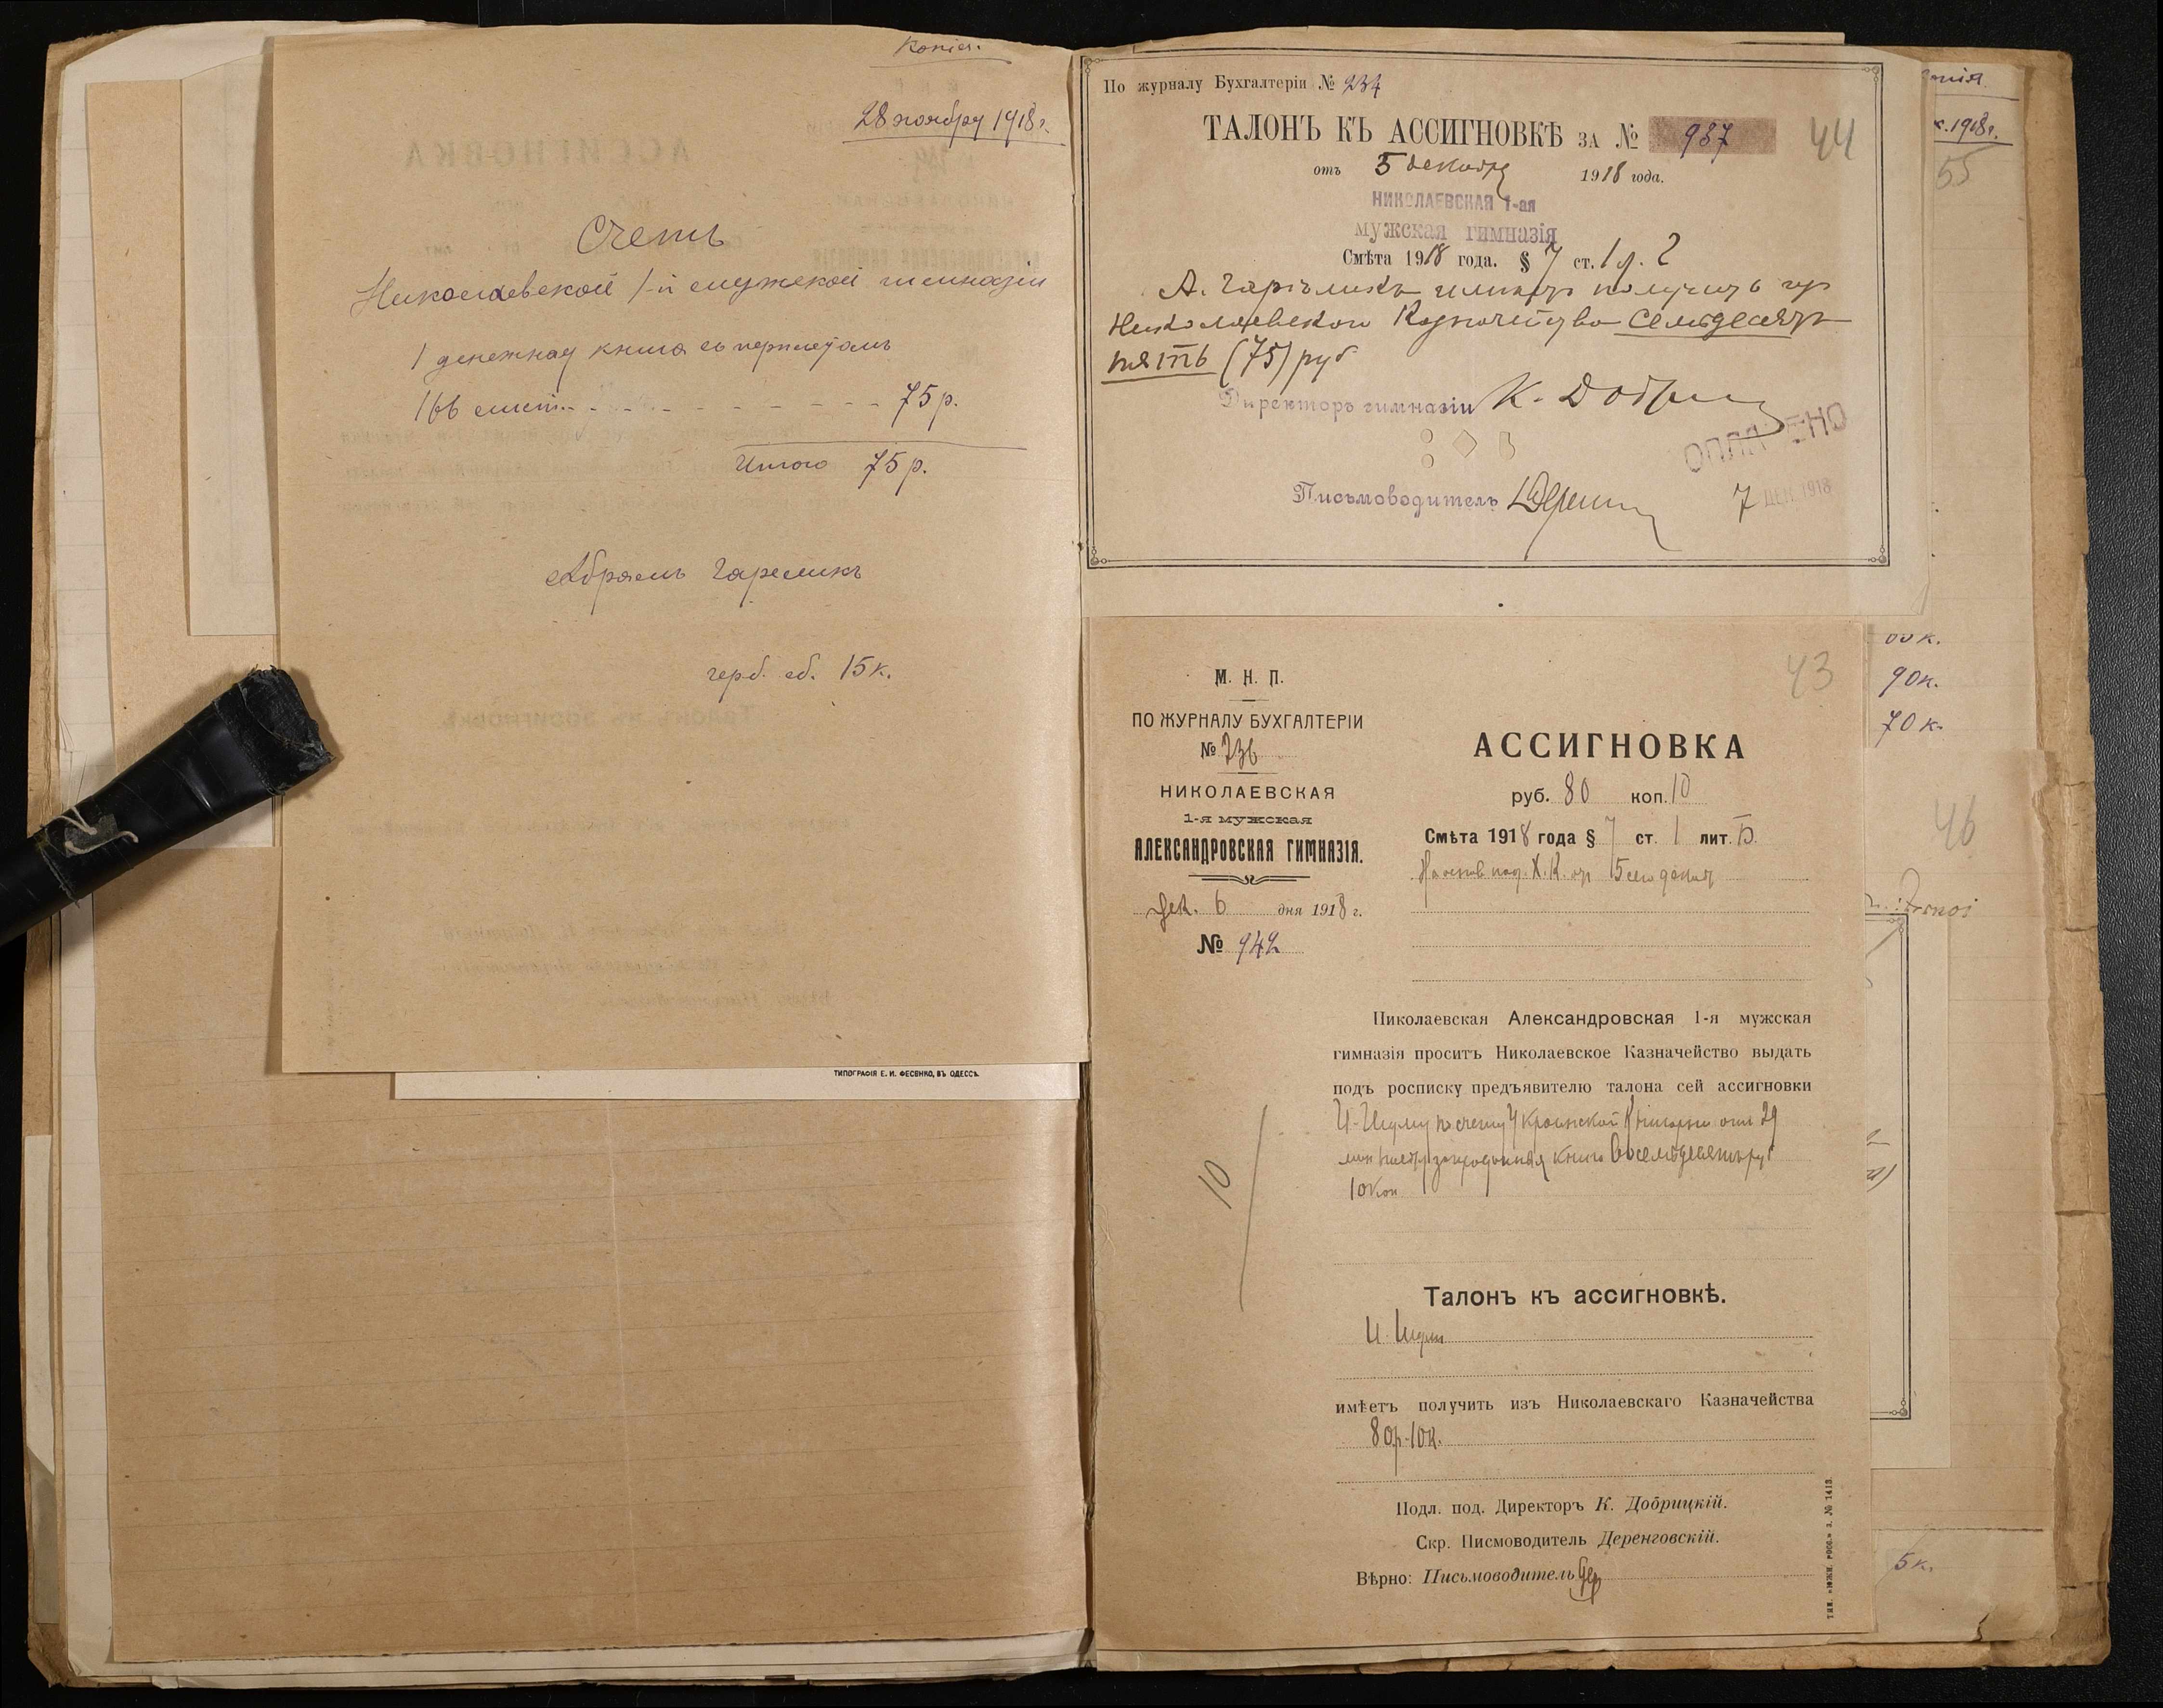 Копія.
28 ноября 1918 г.
Счетъ
Николаевской 1-й мужской гимназіи
1 денежная книга съ переплетомъ
166 лист. - - - - - - - - - 75 р.
Итого 75 р.
Абрамъ Гареликъ
герб. сб. 15 к.
ТИПОГРАФІЯ Е. И. ФЕСЕНКО, ВЪ ОДЕССѢ.
По журналу Бухгалтеріи № 234
ТАЛОНЪ КЪ АССИГНОВКѢ ЗА № 937
44
отъ 5 декабря 1918 года.
НИКОЛАЕВСКАЯ 1-ая
мужская гимназія
Смѣта 1918 года. § 7 ст. 1 л. 2
А. Гарѣликъ имѣетъ получить изъ
Николаевскаго Казначейства семьдесятъ
пять (75) руб
Директоръ гимназіи К. Добр
ОПЛАЧЕНО
Письмоводитель
7 ДЕК 1918
43
М. Н. П.
ПО ЖУРНАЛУ БУХГАЛТЕРІИ
№ 236
НИКОЛАЕВСКАЯ
1-я мужская
АЛЕКСАНДРОВСКАЯ ГИМНАЗІЯ.
Дек. 6 дня 1918 г.
№ 942
АССИГНОВКА
руб. 80 коп. 10
Смѣта 1918 года § 7 ст. 1 лит. Б.
На основ. пол. Х. К. от 5 сего декаб
Николаевская Александровская 1-я мужская
гимназія проситъ Николаевское Казначейство выдать
подъ росписку предъявителю талона сей ассигновки
И. по счету Украинской Книгарни отъ 29
книги восемьдесятъ руб
10 коп
10
Талонъ къ ассигновкѣ.
И.
имѣетъ получить изъ Николаевскаго Казначейства
80 р. 10 к.
Подл. под. Директоръ К. Добрицкій.
Скр. Писмоводитель Деренговскій.
Вѣрно: Письмоводитель Дер
ТИП. «ЮЖН. РОСС.» З. № 1413.
опія.
к. 1918 г.
55
00 к.
90 к.
70 к.
46
5 к.